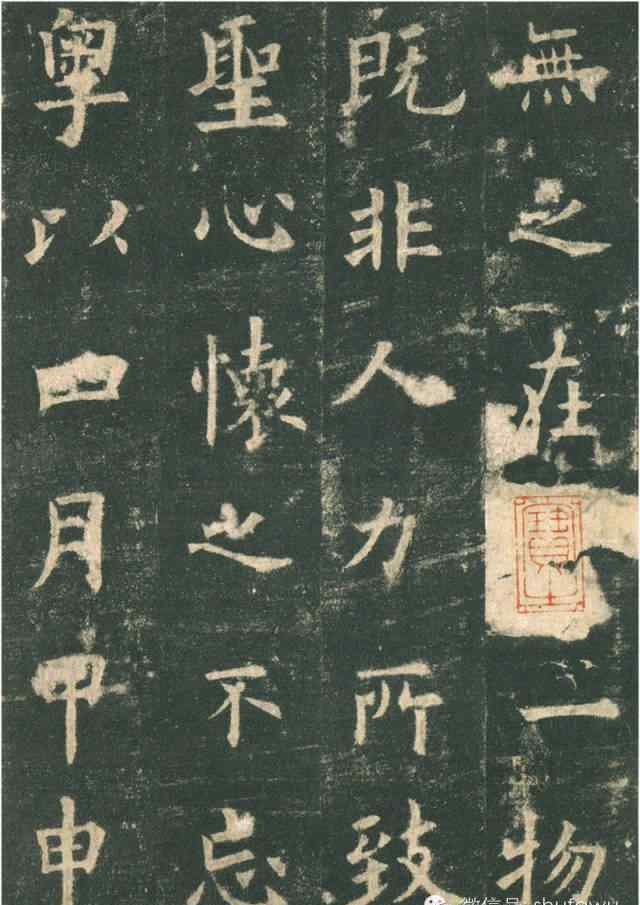 無之在一物
既非人力所致
聖心懷之不忘
粵以四月甲申
微信号: shufawu